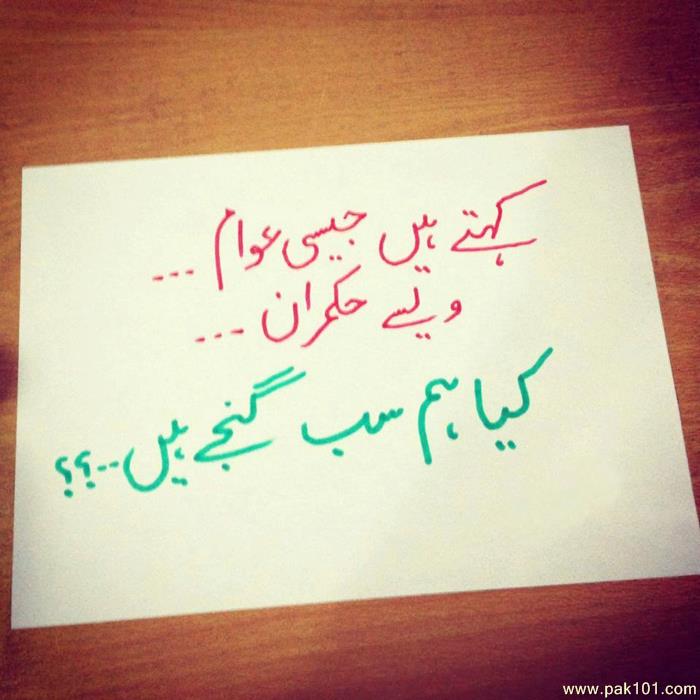 کہتے ہیں جیسی عوام ...
ویسے حکمران ...
کیا ہم سب گنجے ہیں...؟؟
www.pak101.com